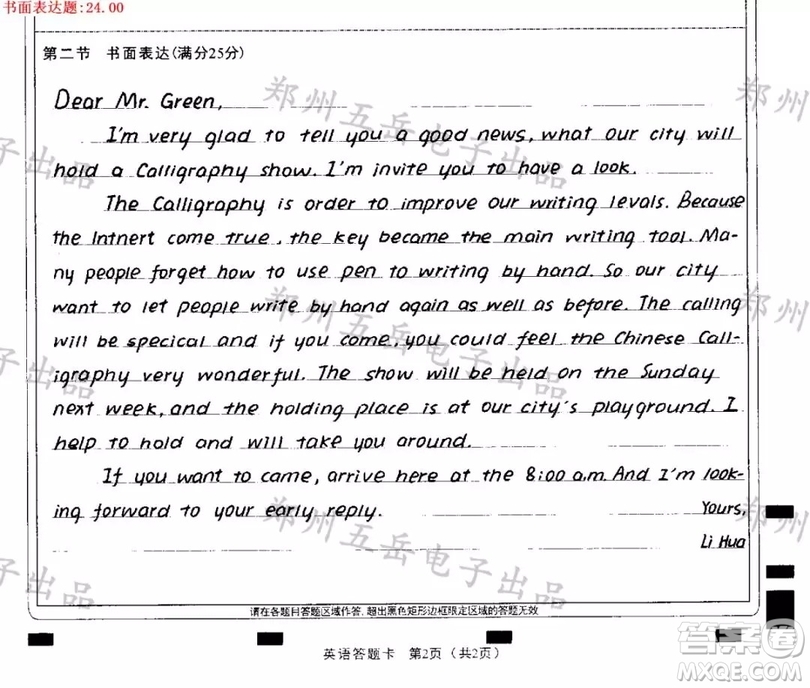 书面表达题:24.00
第二节 书面表达(满分25分)
Dear Mr. Green,
I'm very glad to tell you a good news, what our city will
hold a Calligraphy show. I'm invite you to have a look.
The Calligraphy is order to improve our writing levals. Because
the Intnert come true, the key become the main writing tool. Ma-
ny people forget how to use pen to writing by hand. So our city
want to let people write by hand again as well as before. The calling
will be specical and if you come, you could feel the Chinese Call-
igraphy very wonderful. The show will be held on the Sunday
next week, and the holding place is at our city's playground. I
help to hold and will take you around.
If you want to came, arrive here at the 8:00 a.m. And I'm look-
ing forward to your early reply. Yours,
Li Hua
请在各题目答题区域作答,超出黑色矩形边框限定区域的答题无效
英语答题卡 第2页(共2页)
郑州五岳电子出品
答案圈
MXQE.COM